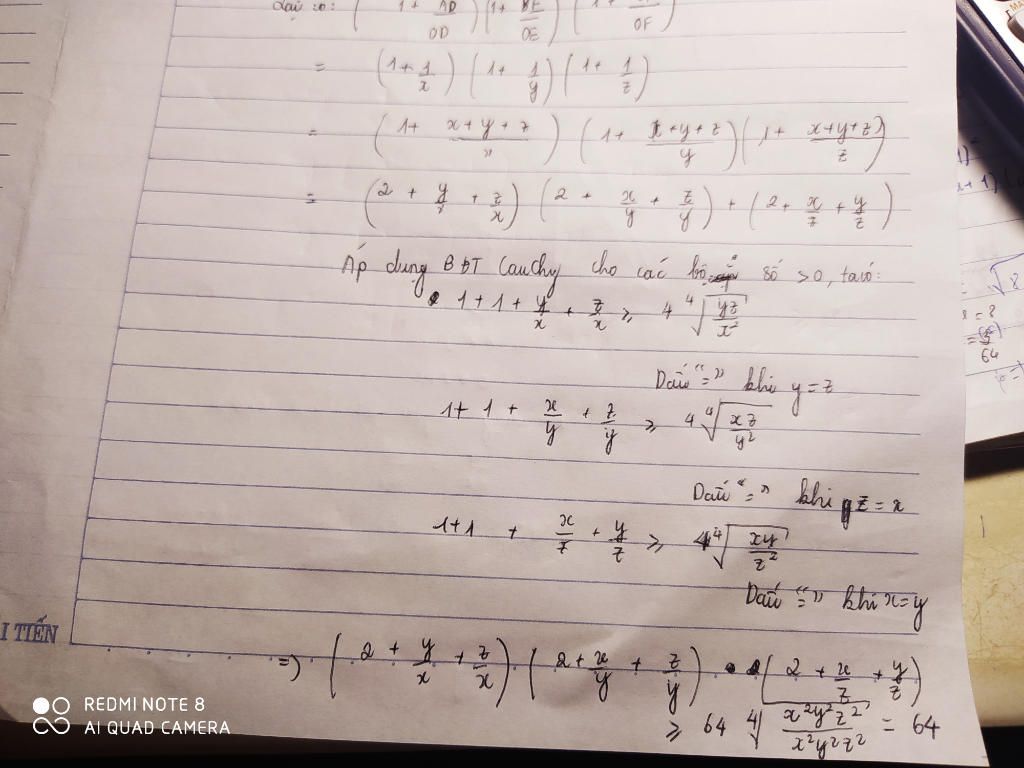 Lại có: ( 1 + AD/OD ) ( 1 + BE/OE ) ( 1 + /OF )
= ( 1 + 1/x ) ( 1 + 1/y ) ( 1 + 1/z )
= ( 1 + x+y+z/x ) ( 1 + x+y+z/y ) ( 1 + x+y+z/z )
= ( 2 + y/x + z/x ) ( 2 + x/y + z/y ) + ( 2 + x/z + y/z )
Áp dụng BĐT Cauchy cho các bộ số > 0, ta có:
1 + 1 + y/x + z/x ≥ 4 ∜(yz/x²)
Dấu "=" khi y = z
1 + 1 + x/y + z/y ≥ 4 ∜(xz/y²)
Dấu "=" khi z = x
1 + 1 + x/z + y/z ≥ 4 ∜(xy/z²)
Dấu "=" khi x = y
I TIẾN
=> ( 2 + y/x + z/x ) . ( 2 + x/y + z/y ) . ( 2 + x/z + y/z )
≥ 64 ∜(x²y²z²/x²y²z²) = 64
REDMI NOTE 8
AI QUAD CAMERA